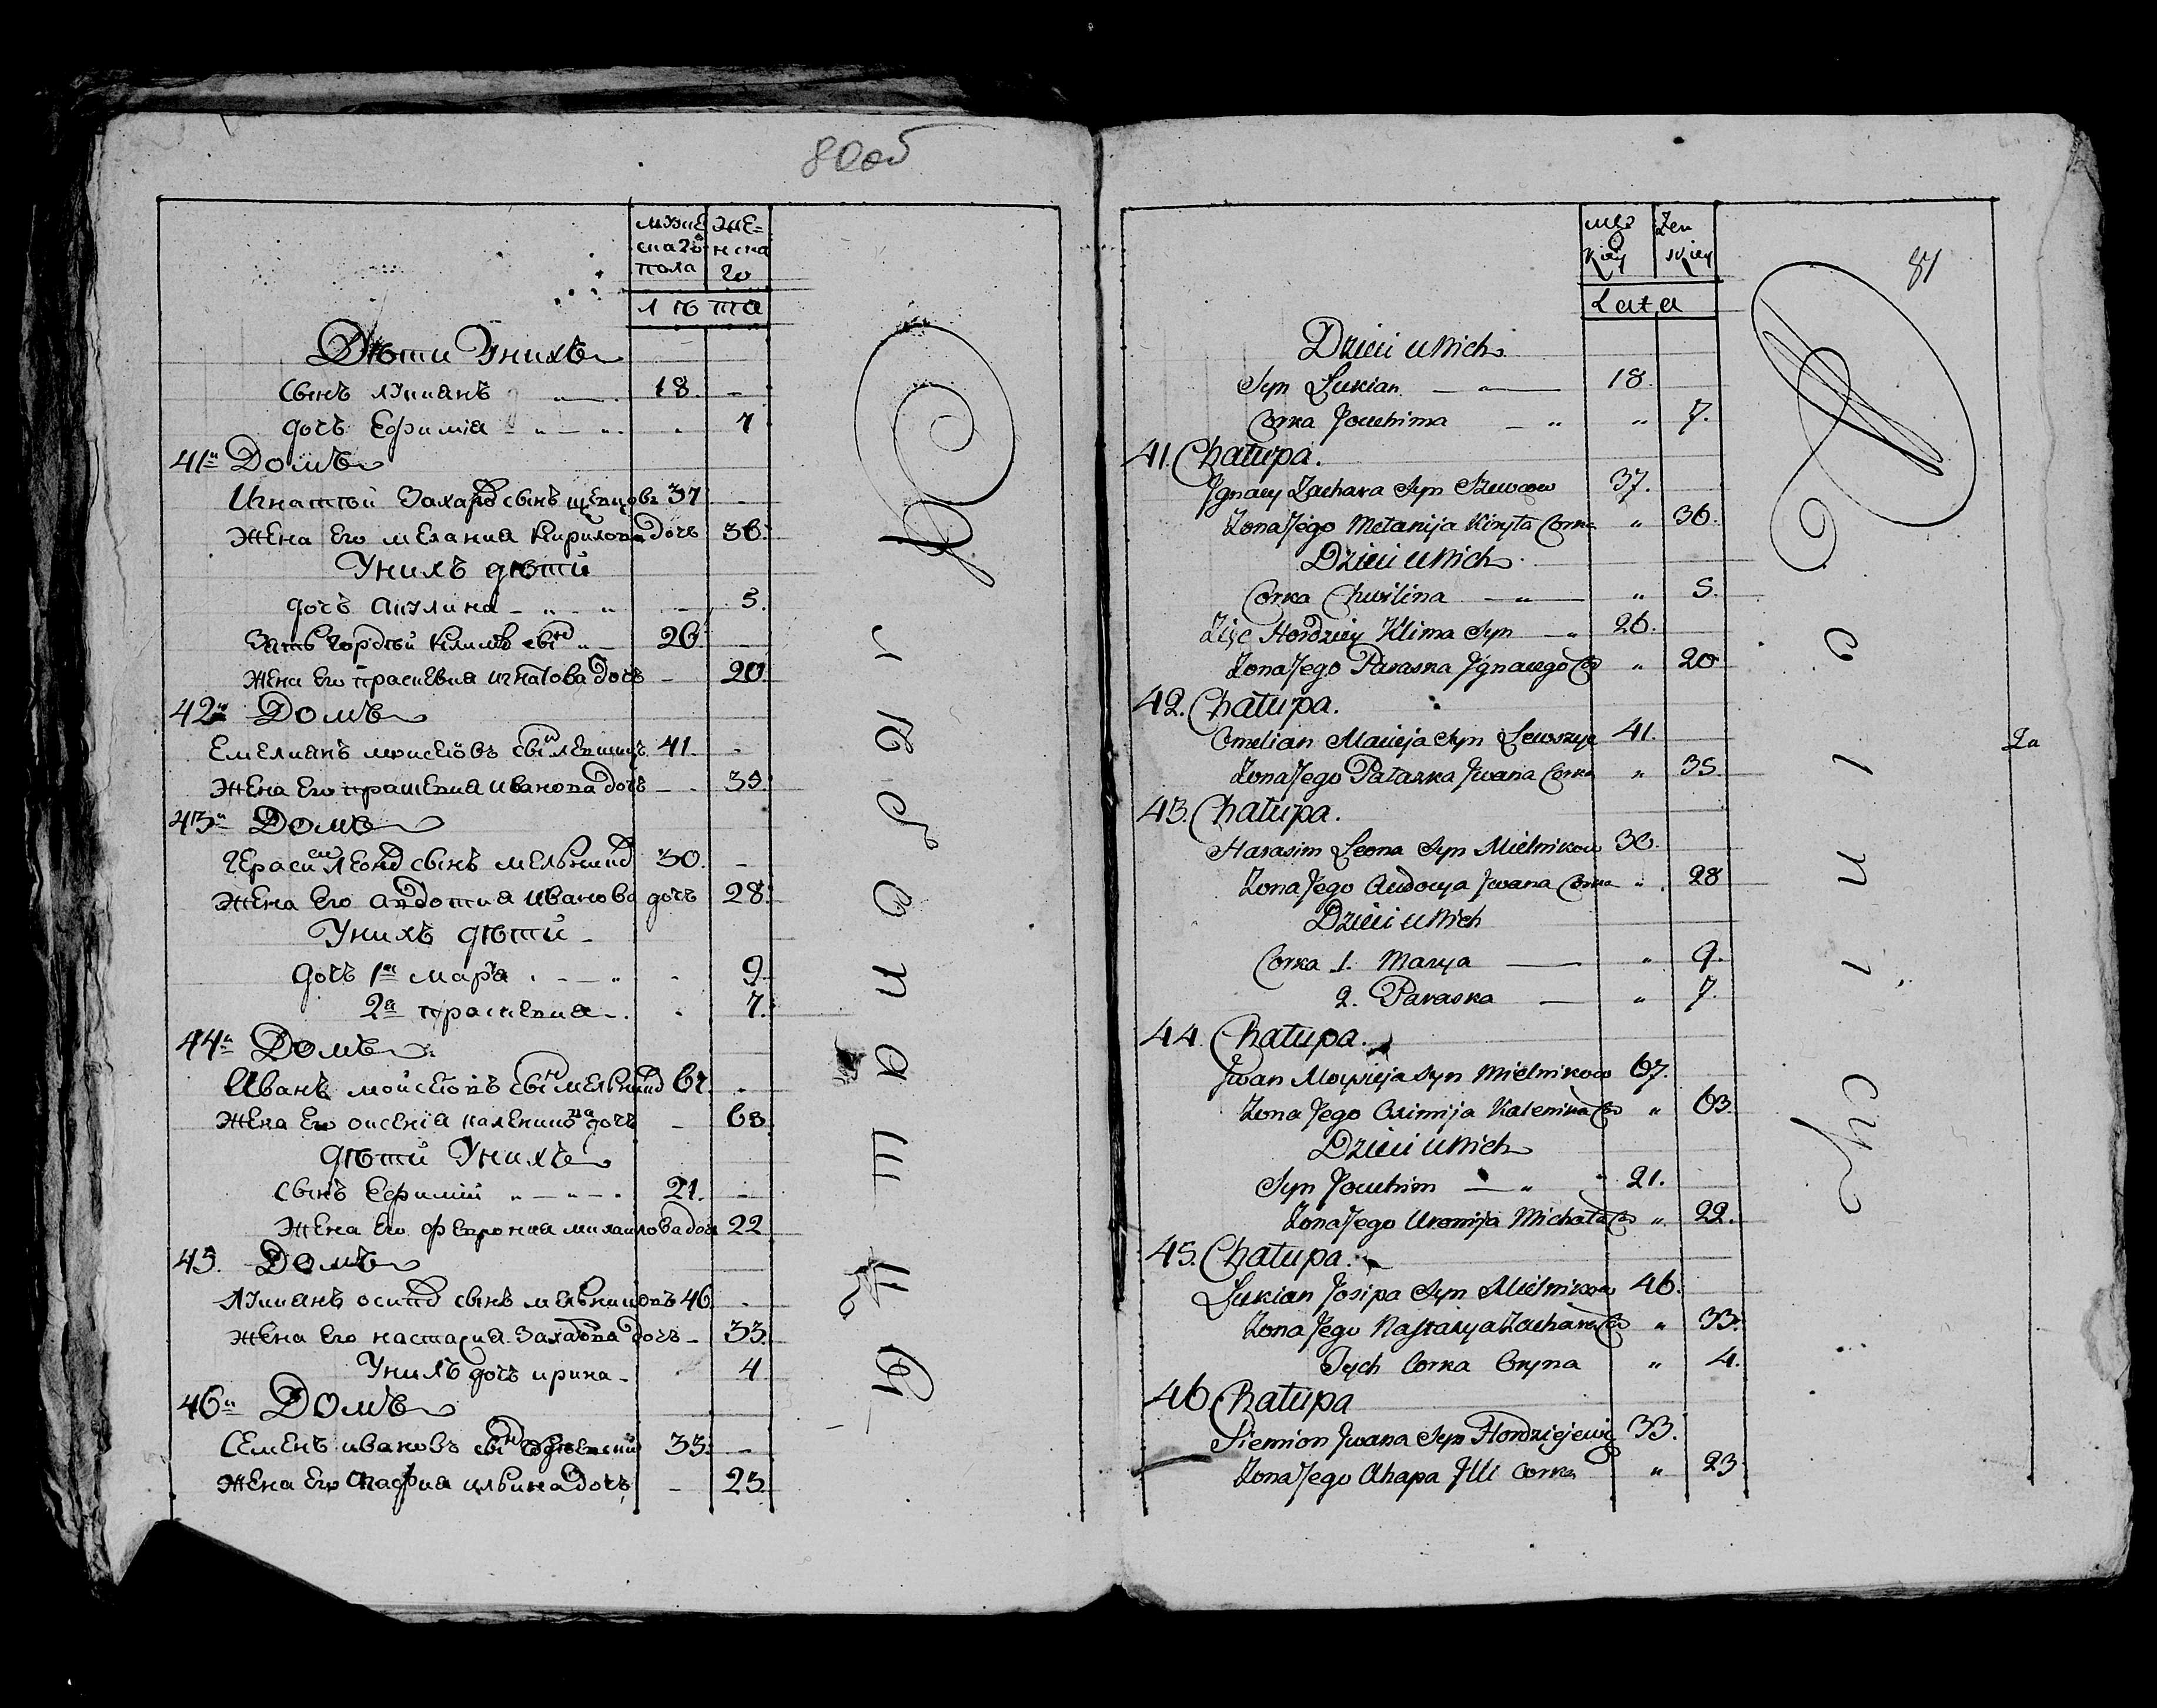 80об
мужескаго пола
женскаго
лѣта
Дѣти Унихъ
сынъ лукианъ 18. -
дочъ Ефимїа - " - " . 7
41й Домъ
Игнатъй Захаровъ сынъ шевцовъ 37 -
жена Его мелания Кирилова дочъ 36.
Унихъ дѣти
дочъ Акулина - " - " - 5.
Зать Гордѣй Климовъ сынъ " - 26. -
жена Его праскевия игнатова дочъ - 20.
42й Домъ
Емелианъ моисеовъ сынъ 41. -
жена Его праскевиа иванова дочъ - 35.
43й Домъ
Герасим Леонов сынъ мельников 30. -
жена Его авдотиа иванова дочъ 28.
Унихъ дѣти -
дочъ 1я мариа . - " . 9
2я праскевиа - . . 7.
44й Домъ
Иванъ мойсеовъ сынъ мельников 67. .
жена Его оксенїа каленикова дочъ - 63
дѣти Унихъ
сынъ Ефимий " - " - . 21. -
жена Его феврониа михаилова дочъ 22
45. Домъ
Лукианъ осипов сынъ мельниковъ 46. .
жена Его настасиа Захарова дочъ - 33.
Унихъ дочъ ирина - . 4
46й Домъ
Семенъ ивановъ сынъ 33. -
жена Его Агафиа ильина дочъ - 23.
81
męzkiey
Zenskiey
Lata
Dzieci u Nich
Syn Łukian — " — 18.
Corka Jouchima — " " 7.
41. Chałupa.
Jgnacy Zachara Syn Szewcow 37.
Zona Jego Mełanija Kiryła Corka " 36.
Dzieci u Nich
Corka Chwilina — " — " 5.
Zięc Hordziey Klima Syn — " 26.
Zona Jego Paraska Jgnacego Cor " 20
42. Chałupa.
Omelian Macieja Syn 41.
Zona Jego Pałaska Jwana Corka " 35.
43. Chałupa.
Harasim Leona Syn Mielnikow 30.
Zona Jego Audocya Jwana Corka " 28
Dzieci u Nich
Corka 1. Marya — " 9.
2. Paraska — " 7.
44. Chałupa.
Jwan Moysieja Syn Mielnikow 67.
Zona Jego Oximija Kalenika Cor " 63.
Dzieci u Nich
Syn Jouchim — " " 21.
Zona Jego Michała Cor " 22.
45. Chałupa.
Łukian Josipa Syn Mielnikow 46.
Zona Jego Nastazya Zachara Cor " 33.
Tych Corka Oryna " 4.
46 Chałupa
Siemion Jwana Syn 33.
Zona Jego Ahapa Jlli Corka " 23
Za